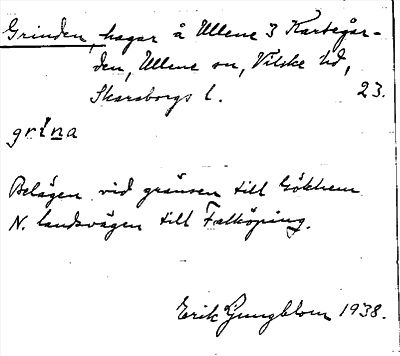 Grinden, hagar å Ullene 3 Karlegår-
den, Ullene sn, Vilske hd,
Skaraborgs l. 23.
grina
Belägen vid gränsen till Gökhem
N. landsvägen till Falköping.
Erik Ljungblom 1938.